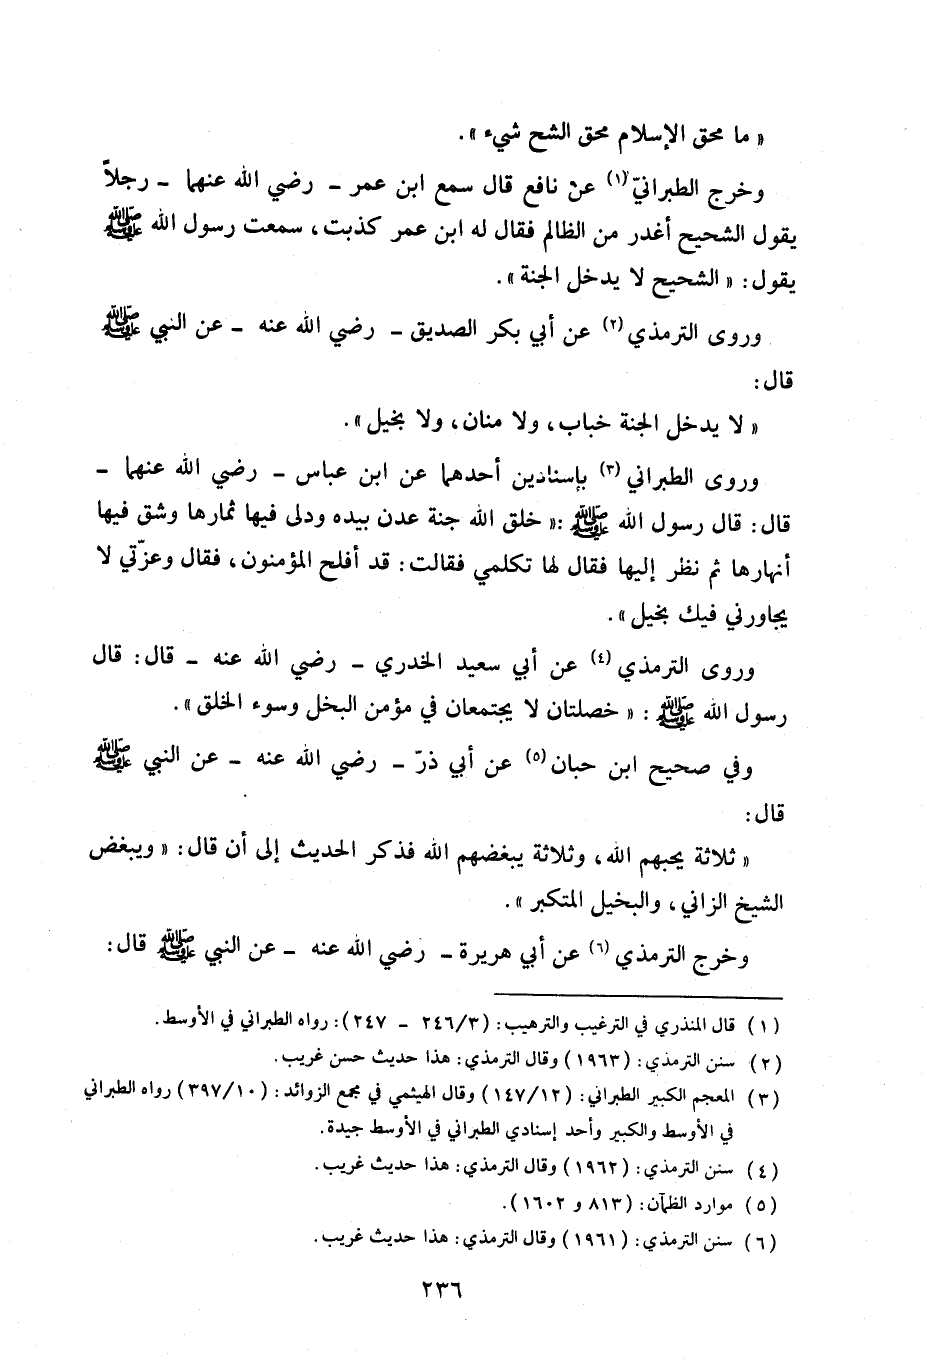 « ما محق الإسلام محق الشح شيء ».
وخرج الطبرانيّ (١) عنْ نافع قال سمع ابن عمر – رضي الله عنهما – رجلاً
يقول الشحيح أغدر من الظالم فقال له ابن عمر كذبت، سمعت رسول الله ﷺ
يقول: « الشحيح لا يدخل الجنة ».
وروى الترمذي (٢) عن أبي بكر الصديق – رضي الله عنه – عن النبي ﷺ
قال:
« لا يدخل الجنة خباب، ولا منان، ولا بخيل ».
وروى الطبراني (٣) بإسنادين أحدهما عن ابن عباس – رضي الله عنهما –
قال: قال رسول الله ﷺ :« خلق الله جنة عدن بيده ودلى فيها ثمارها وشق فيها
أنهارها ثم نظر إليها فقال لها تكلمي فقالت: قد أفلح المؤمنون، فقال وعزّتي لا
يجاورني فيك بخيل ».
وروى الترمذي (٤) عن أبي سعيد الخدري – رضي الله عنه – قال: قال
رسول الله ﷺ : « خصلتان لا يجتمعان في مؤمن البخل وسوء الخلق ».
وفي صحيح ابن حبان (٥) عن أبي ذرّ – رضي الله عنه – عن النبي ﷺ
قال:
« ثلاثة يحبهم الله، وثلاثة يبغضهم الله فذكر الحديث إلى أن قال: « ويبغض
الشيخ الزاني، والبخيل المتكبر ».
وخرج الترمذي (٦) عن أبي هريرة – رضي الله عنه – عن النبي ﷺ قال:
(١) قال المنذري في الترغيب والترهيب: (٢٤٦/٣ – ٢٤٧): رواه الطبراني في الأوسط.
(٢) سنن الترمذي: (١٩٦٣) وقال الترمذي: هذا حديث حسن غريب.
(٣) المعجم الكبير الطبراني: (١٤٧/١٢) وقال الهيثمي في مجمع الزوائد: (٣٩٧/١٠) رواه الطبراني
في الأوسط والكبير وأحد إسنادي الطبراني في الأوسط جيدة.
(٤) سنن الترمذي: (١٩٦٢) وقال الترمذي: هذا حديث غريب.
(٥) موارد الظمآن: (٨١٣ و ١٦٠٢).
(٦) سنن الترمذي: (١٩٦١) وقال الترمذي: هذا حديث غريب.
٢٣٦